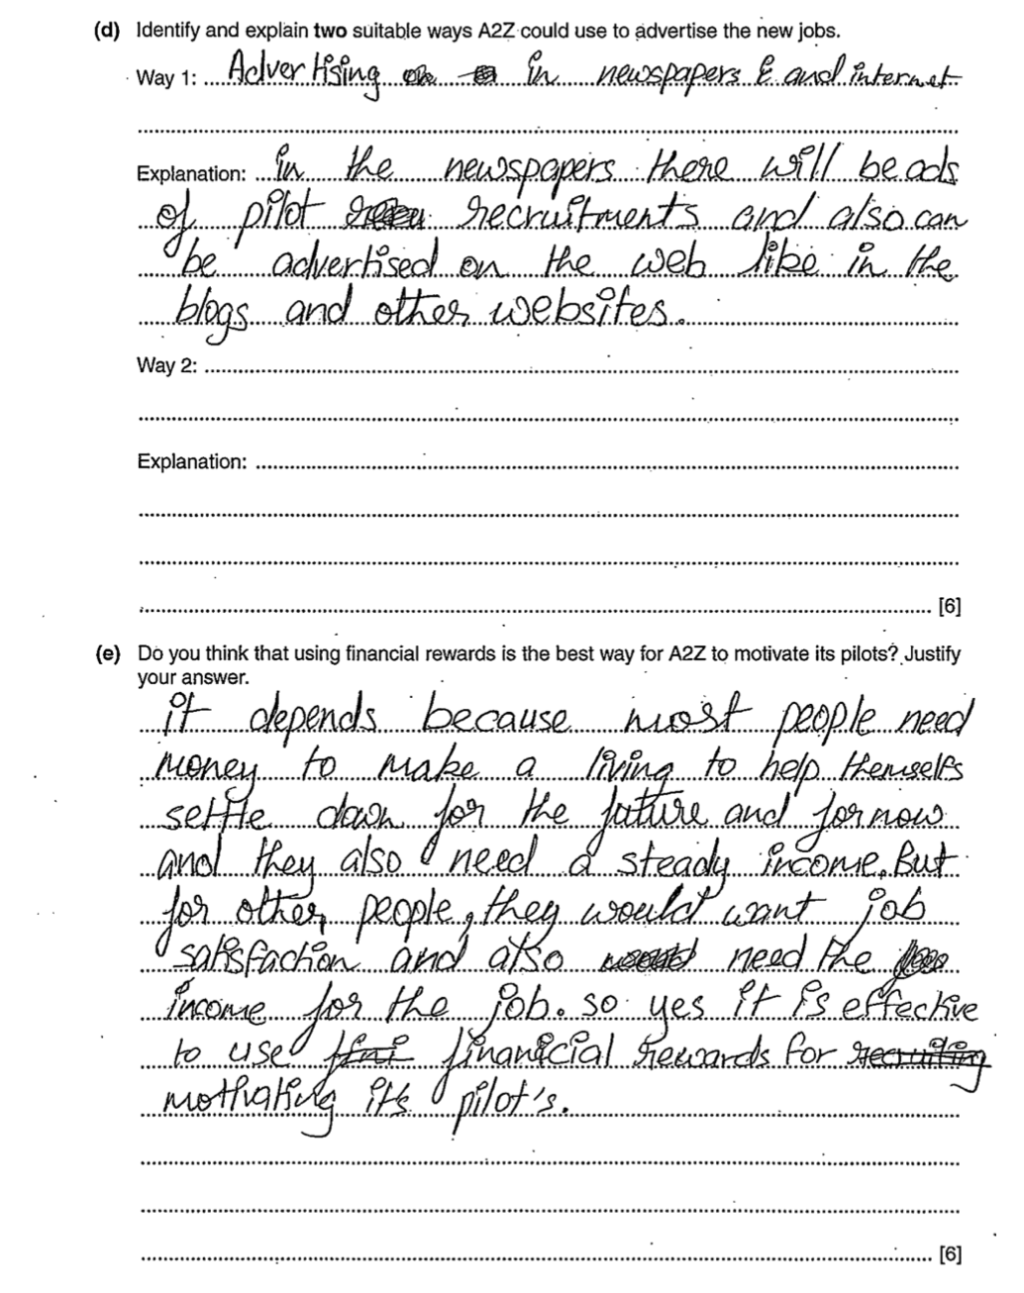 (d) Identify and explain two suitable ways A2Z could use to advertise the new jobs.
Way 1: Advertising in newspapers & and internet
Explanation: in the newspapers there will be ads
of pilot recruitments and also can
be advertised on the web like in the
blogs and other websites.
Way 2:
Explanation:
[6]
(e) Do you think that using financial rewards is the best way for A2Z to motivate its pilots? Justify
your answer.
it depends because most people need
money to make a living to help themselfs
settle down for the future and for now
and they also need a steady income. But
for other people, they would want job
satisfaction and also need the
income for the job. so yes it is effective
to use financial rewards for recruiting
mothating its pilot's.
[6]